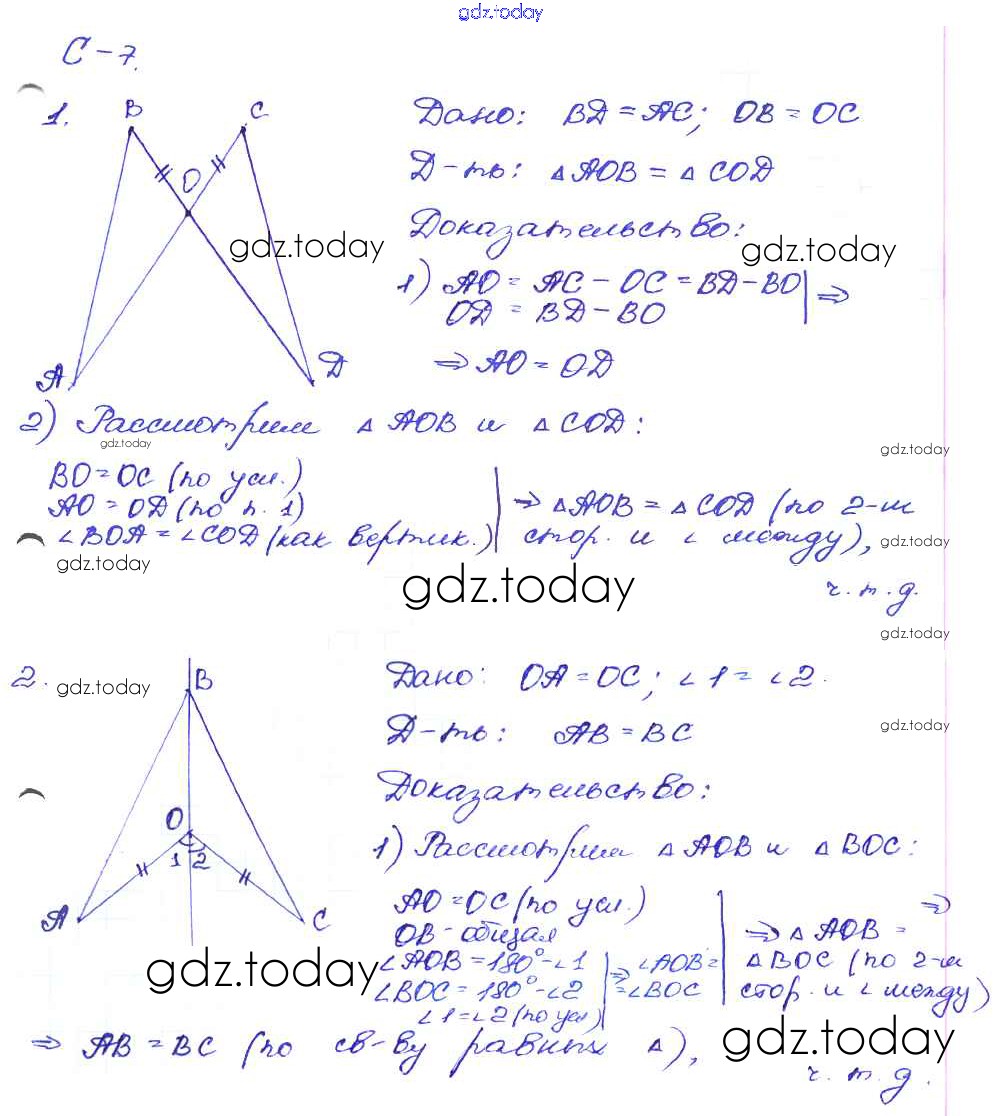 gdz.today
С-7.
1.
B
C
O
A
Д
Дано: BД = AC; OB = OC
Д-ть: △AOB = △COД
Доказательство:
gdz.today
gdz.today
1) AO = AC - OC = BД - BO | ⇒
OД = BД - BO
⇒ AO = OД
2) Рассмотрим △AOB и △COД:
gdz.today
gdz.today
BO = OC (по усл.)
AO = OД (по п. 1)
∠BOA = ∠COД (как вертик.)
⇒ △AOB = △COД (по 2-м
стор. и ∠ между),
gdz.today
gdz.today
gdz.today
ч.т.д.
gdz.today
2.
gdz.today
B
O
1 2
A
C
Дано: OA = OC; ∠1 = ∠2.
gdz.today
Д-ть: AB = BC
Доказательство:
1) Рассмотрим △AOB и △BOC:
AO = OC (по усл.)
OB - общая
∠AOB = 180° - ∠1
∠BOC = 180° - ∠2
∠1 = ∠2 (по усл)
⇒ ∠AOB =
= ∠BOC
⇒
⇒ △AOB =
△BOC (по 2-м
стор. и ∠ между)
gdz.today
gdz.today
⇒ AB = BC (по св-ву равных △),
ч.т.д.